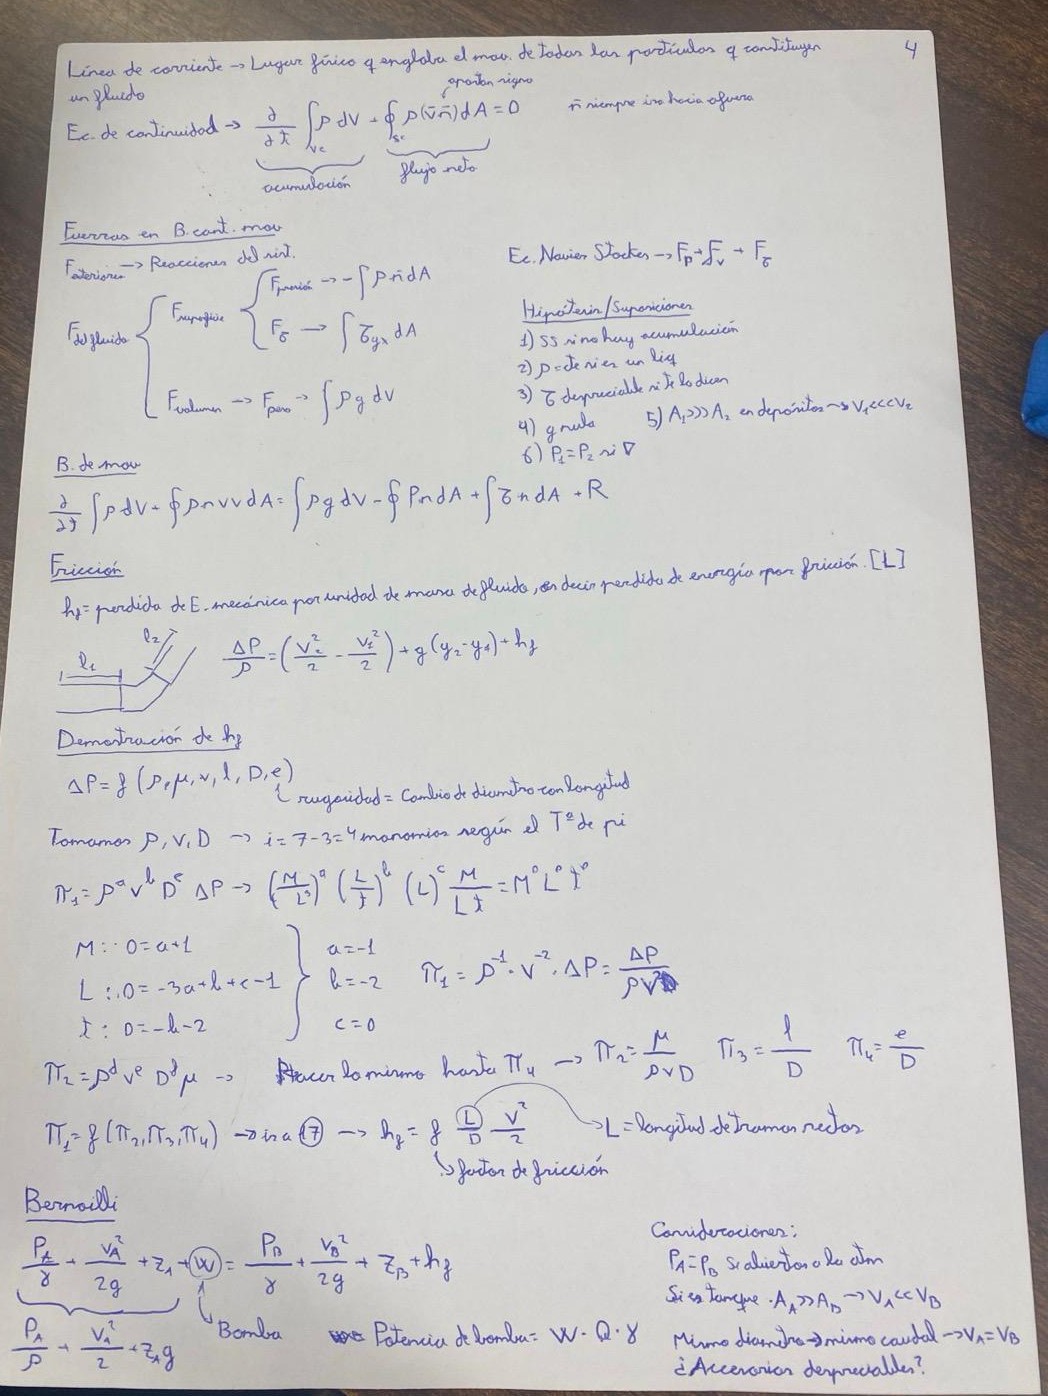 4
Línea de corriente → Lugar físico q engloba el mov. de todas las partículas q constituyen
un fluido
aportan signo
Ec. de continuidad → ∂/∂t ∫vc ρ dV + ∮sc ρ(v̄n̄)dA = 0
n̄ siempre irá hacia afuera
acumulación
flujo neto
Fuerzas en B. cant. mov
Fexteriores → Reacciones del sist.
Fdel fluido
Fsuperficie
Fpresión → -∫ p n̄ dA
Fτ → ∫ τyx dA
Fvolumen → Fpeso → ∫ ρ g dV
Ec. Navier Stockes → Fp + Fv + Fτ
Hipótesis/Suposiciones
1) SS si no hay acumulación
2) ρ = cte si es un liq
3) τ despreciable si te lo dicen
4) g nula
5) A1>>>A2 en depósitos → V1<<<V2
6) P1=P2 si ∇
B. de mov
∂/∂t ∫ρ dV + ∮ρ n v v dA = ∫ρ g dV - ∮P n dA + ∫τ n dA + R
Fricción
hf = perdida de E. mecánica por unidad de masa de fluido, es decir perdida de energía por fricción. [L]
l1
l2
ΔP/ρ = (V2²/2 - V1²/2) + g(y2-y1) + hf
Demostración de hf
ΔP = f (ρ, μ, v, l, D, e)
rugosidad = Cambio de diametro con longitud
Tomamos ρ, V, D → i = 7-3 = 4 monomios según el Tª de pi
π1 = ρᵃ vᵇ Dᶜ ΔP → (M/L³)ᵃ (L/t)ᵇ (L)ᶜ M/Lt = M⁰ L⁰ t⁰
M: 0 = a+1
L: 0 = -3a+b+c-1
t: 0 = -b-2
a = -1
b = -2
c = 0
π1 = ρ⁻¹ · v⁻² · ΔP = ΔP/ρV²
π2 = ρᵈ vᵉ Dᶠ μ → Hacer lo mismo hasta π4 → π2 = μ/ρvD π3 = l/D π4 = e/D
π1 = f (π2, π3, π4) → ir a 17 → hf = f L/D V²/2
L = longitud de tramos rectos
factor de fricción
Bernoilli
PA/γ + VA²/2g + zA + W = PB/γ + VB²/2g + zB + hf
PA/ρ + VA²/2 + zA g
Bomba
Potencia de bomba = W · Q · γ
Consideraciones:
PA = PB Si abiertos a la atm
Si es tanque · AA >> AB → VA << VB
Mismo diametro → mismo caudal → VA = VB
¿Accesorios despreciables?